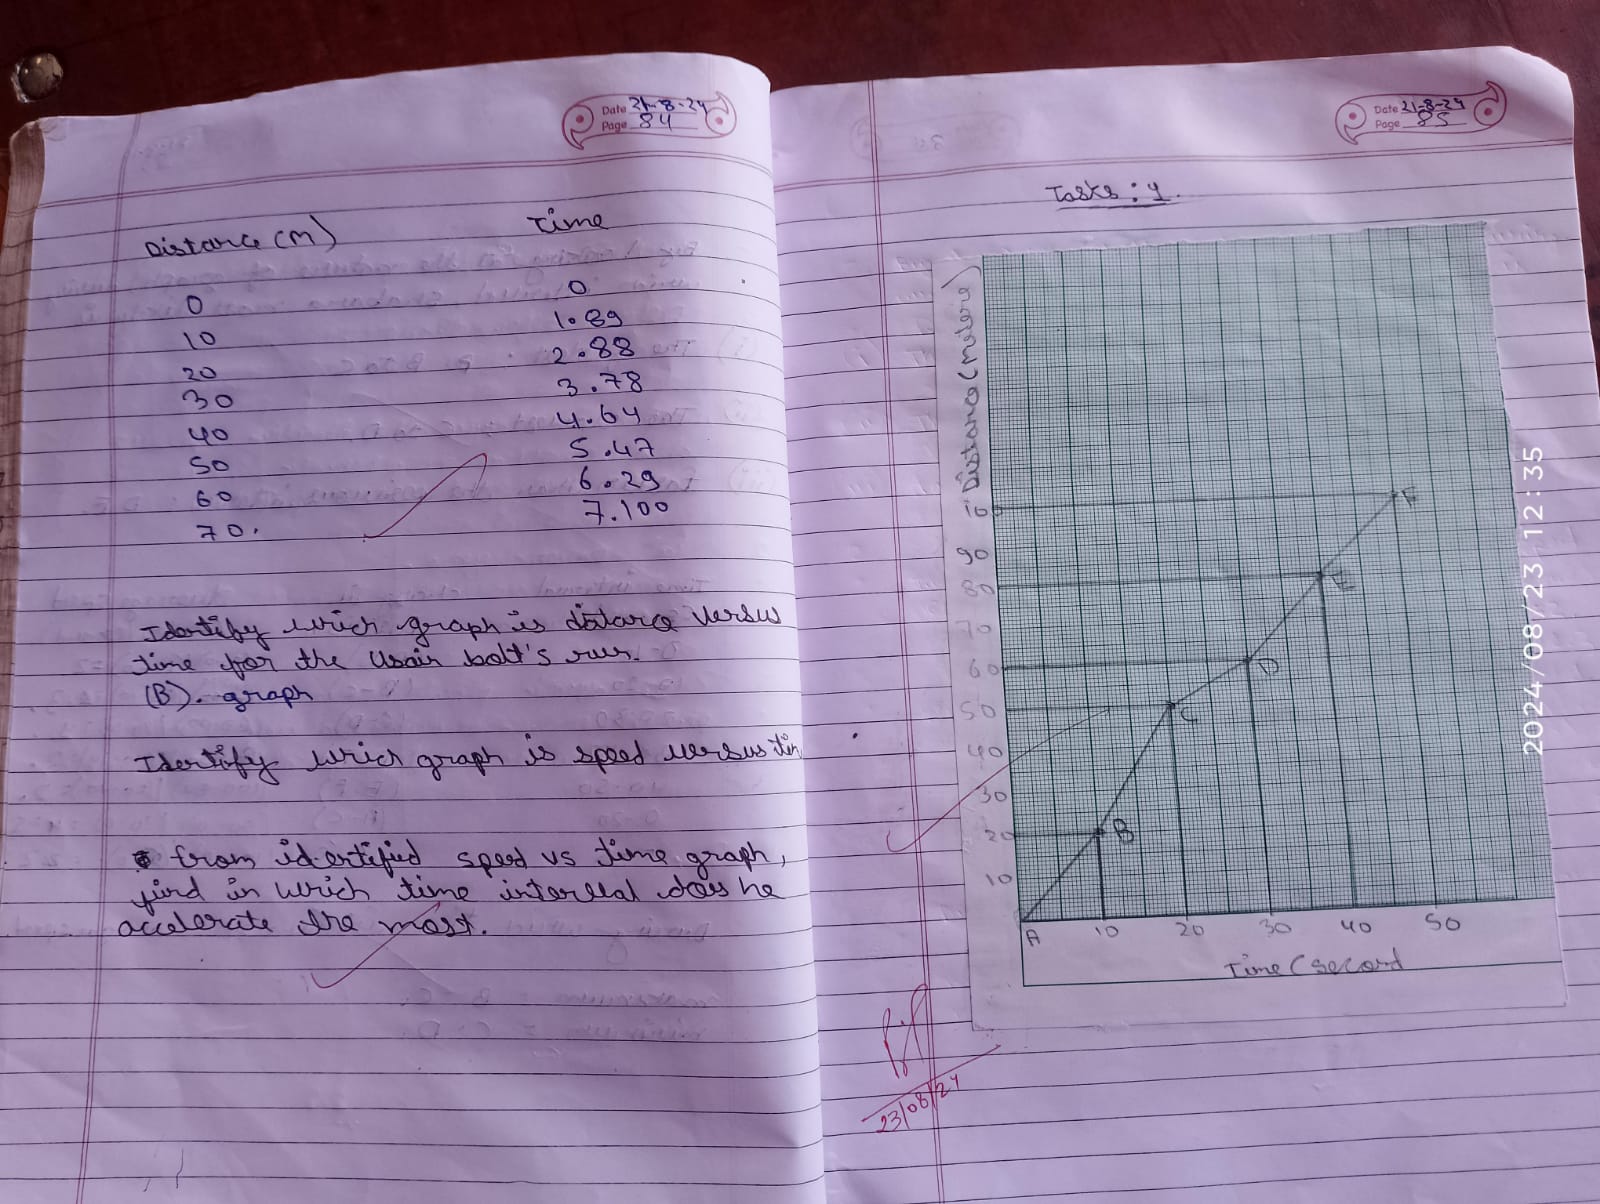 Date 21-8-24
Page 84
Distance (M) Time
0 0
10 1.89
20 2.88
30 3.78
40 4.64
50 5.47
60 6.29
70. 7.100
Identify which graph is distance versus
time for the Usain bolt's run.
(B). graph
Identify which graph is speed versus tim
from identified speed vs time graph,
find in which time interval does he
accelerate the most.
Date 21-8-24
Page 85
Tasks : 1.
Distance (metere)
100
90
80
70
60
50
40
30
20
10
A 10 20 30 40 50
B
C
D
E
F
Time (second
23/08/24
2024/08/23 12:35